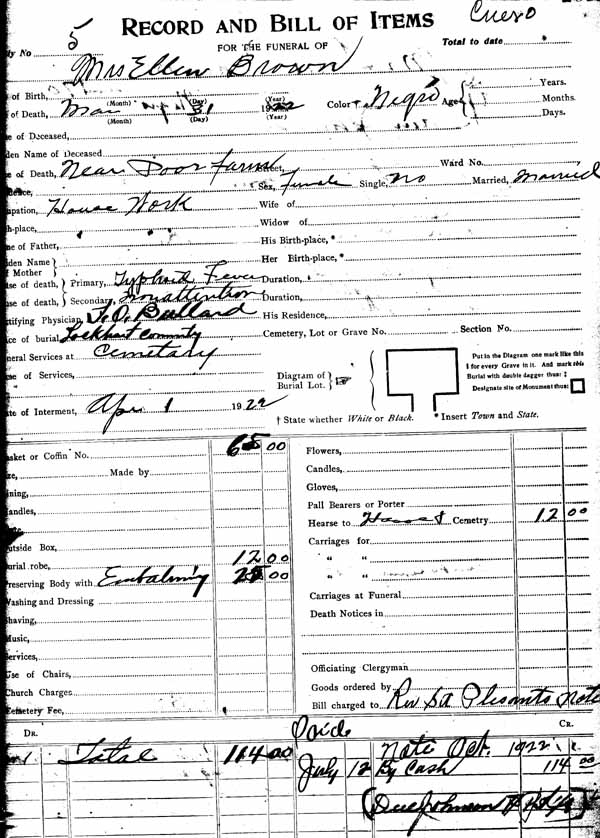 Cuero
5
RECORD AND BILL OF ITEMS
ly No
FOR THE FUNERAL OF
Total to date
Mrs Ellen Brown
of Birth, (Month) (Day) (Year)
Years.
of Death, Mar 31 1922 Color † Negro Age Months.
(Month) (Day) (Year)
Days.
e of Deceased,
den Name of Deceased
e of Death, Near Poor farm Street, Ward No.
dence, Sex, Female Single, No Married, Married
upation, House Work Wife of
h-place, Widow of
e of Father, His Birth-place, *
den Name Her Birth-place, *
f Mother
se of death, Primary, Typhoid Fever Duration,
se of death, Secondary, Duration,
tifying Physician, T.O. Bullard His Residence,
ce of burial, Lockhart County Cemetery, Lot or Grave No. Section No.
neral Services at Cemetary
e of Services,
Diagram of Burial Lot.
Put in the Diagram one mark like this I for every Grave in it. And mark this Burial with double dagger thus: ‡ Designate site of Monument thus:
te of Interment, Apr 1 1922
† State whether White or Black. * Insert Town and State.
asket or Coffin No. 65 00 Flowers,
ze, Made by Candles,
ining, Gloves,
andles, Pall Bearers or Porter
Hearse to Cemetry 12 00
utside Box, Carriages for
urial robe, 12 00 " "
reserving Body with Embalming 25 00 " "
Washing and Dressing Carriages at Funeral
having, Death Notices in
Music,
ervices,
Use of Chairs, Officiating Clergyman
Church Charges Goods ordered by
emetery Fee, Bill charged to Rev SA Plesants Note
DR. Paid CR.
Total 114 00 Note Oct. 1922
July 12 By Cash 114 00